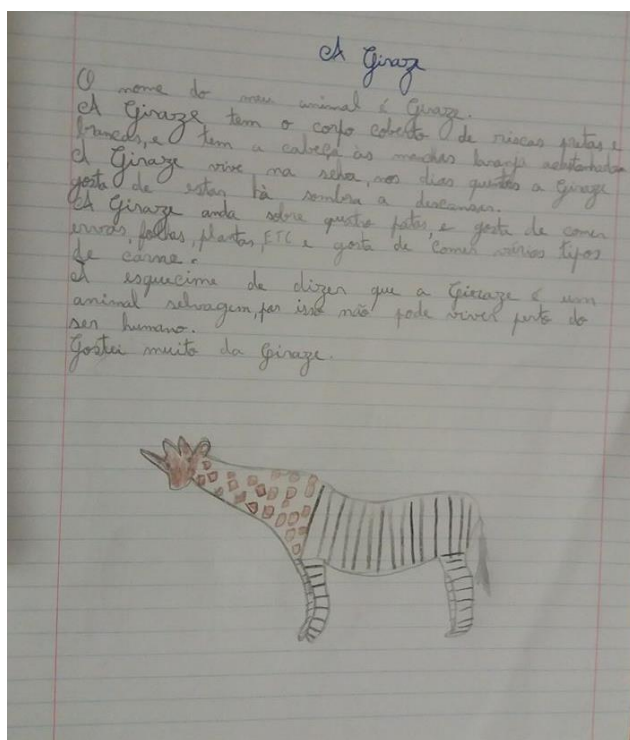 A Giraze
O nome do meu animal é Giraze.
A Giraze tem o corpo coberto de riscas pretas e
brancas, e tem a cabeça às manchas laranja acastanhadas
A Giraze vive na selva, nos dias quentes a Giraze
gosta de estar há sombra a descansar.
A Giraze anda sobre quatro patas, e gosta de comer
ervas, folhas, plantas, ETC e gosta de comer vários tipos
de carne.
A esquecime de dizer que a Giraze é um
animal selvagem, por isso não pode viver perto do
ser humano.
Gostei muito da Giraze.